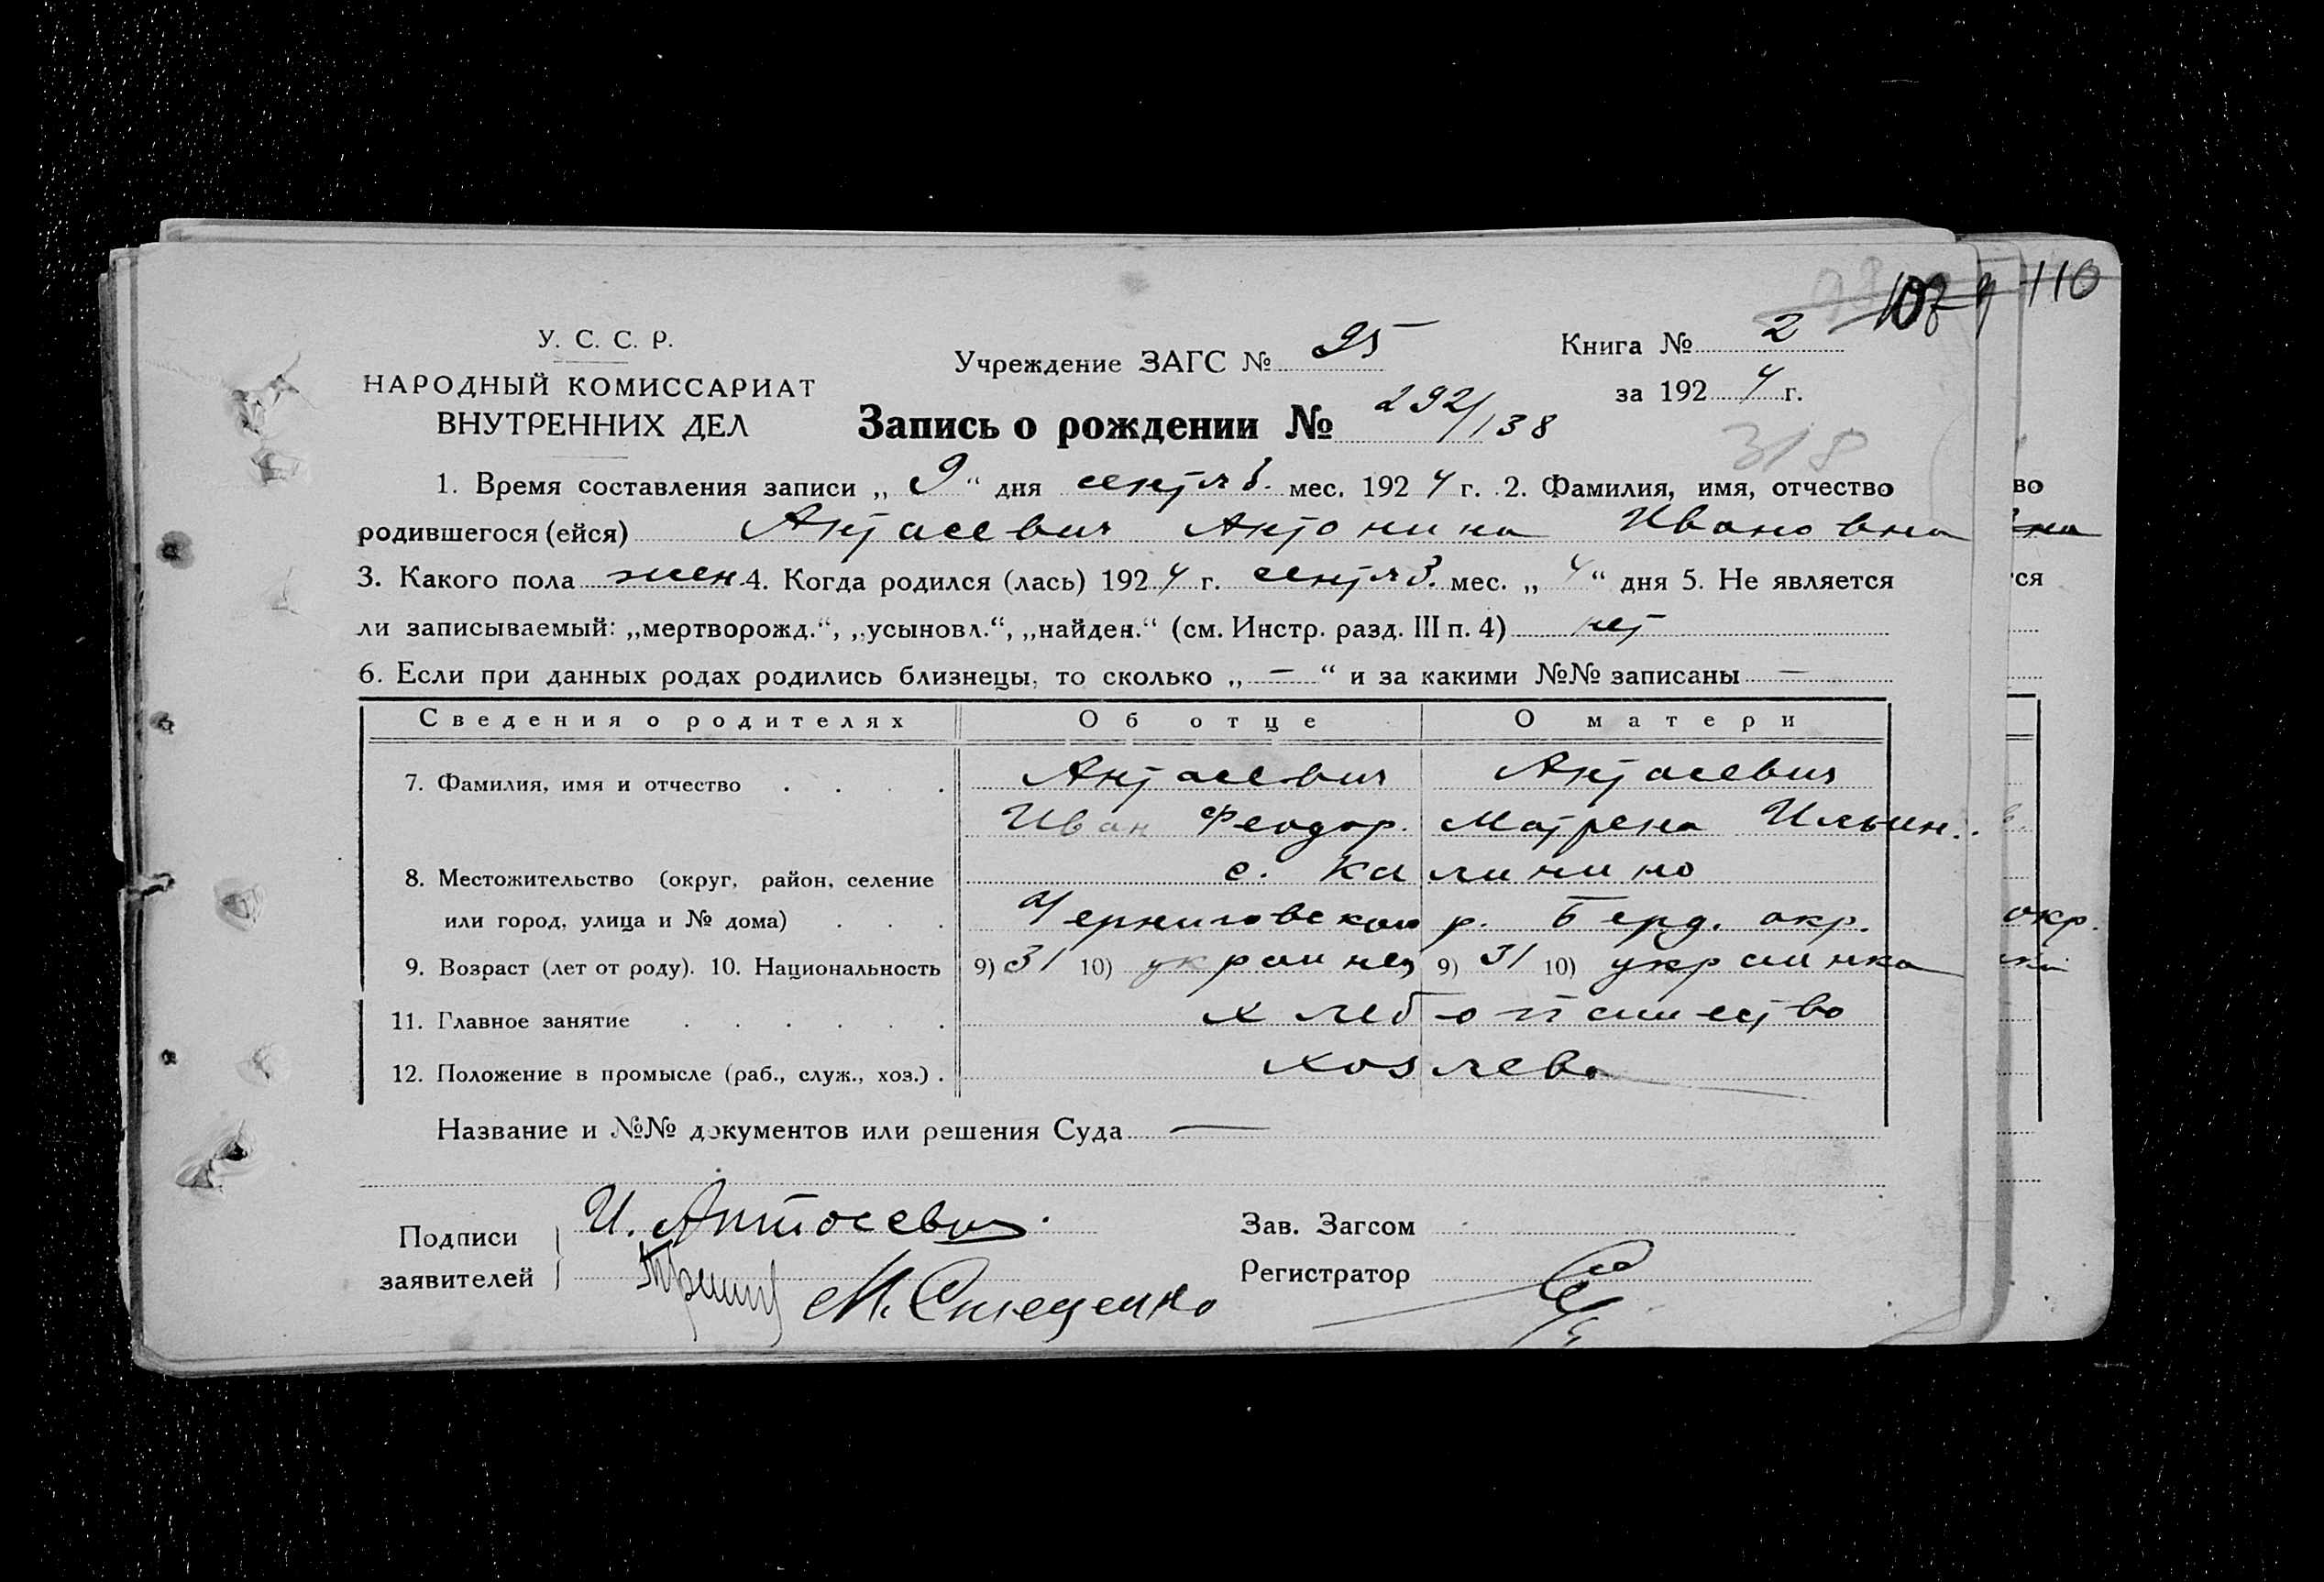 108 9 110
У. С. С. Р.
Учреждение ЗАГС № 95
Книга № 2
НАРОДНЫЙ КОМИССАРИАТ
за 1924 г.
ВНУТРЕННИХ ДЕЛ
Запись о рождении № 292/138
318
1. Время составления записи „9“ дня сентяб. мес. 1924 г. 2. Фамилия, имя, отчество
родившегося (ейся) Антасевич Антонина Ивановна
3. Какого пола жен. 4. Когда родился (лась) 1924 г. сентяб. мес. „4“ дня 5. Не является
ли записываемый: „мертворожд.“, „усыновл.“, „найден.“ (см. Инстр. разд. III п. 4) нет
6. Если при данных родах родились близнецы, то сколько „—“ и за какими №№ записаны —
Сведения о родителях Об отце О матери
7. Фамилия, имя и отчество . . . . Антасевич Антасевич
Иван Феодор. Матрена Ильин.
8. Местожительство (округ, район, селение с. Калинино
или город, улица и № дома) . . . Черниговского р. Берд. окр.
9. Возраст (лет от роду). 10. Национальность 9) 31 10) украинец 9) 31 10) украинка
11. Главное занятие . . . . . . хлебопашество
12. Положение в промысле (раб., служ., хоз.) . хозяева
Название и №№ документов или решения Суда —
Подписи
заявителей
И. Антосевич.
М. Стеценко
Зав. Загсом
Регистратор
во
на
ся
окр.